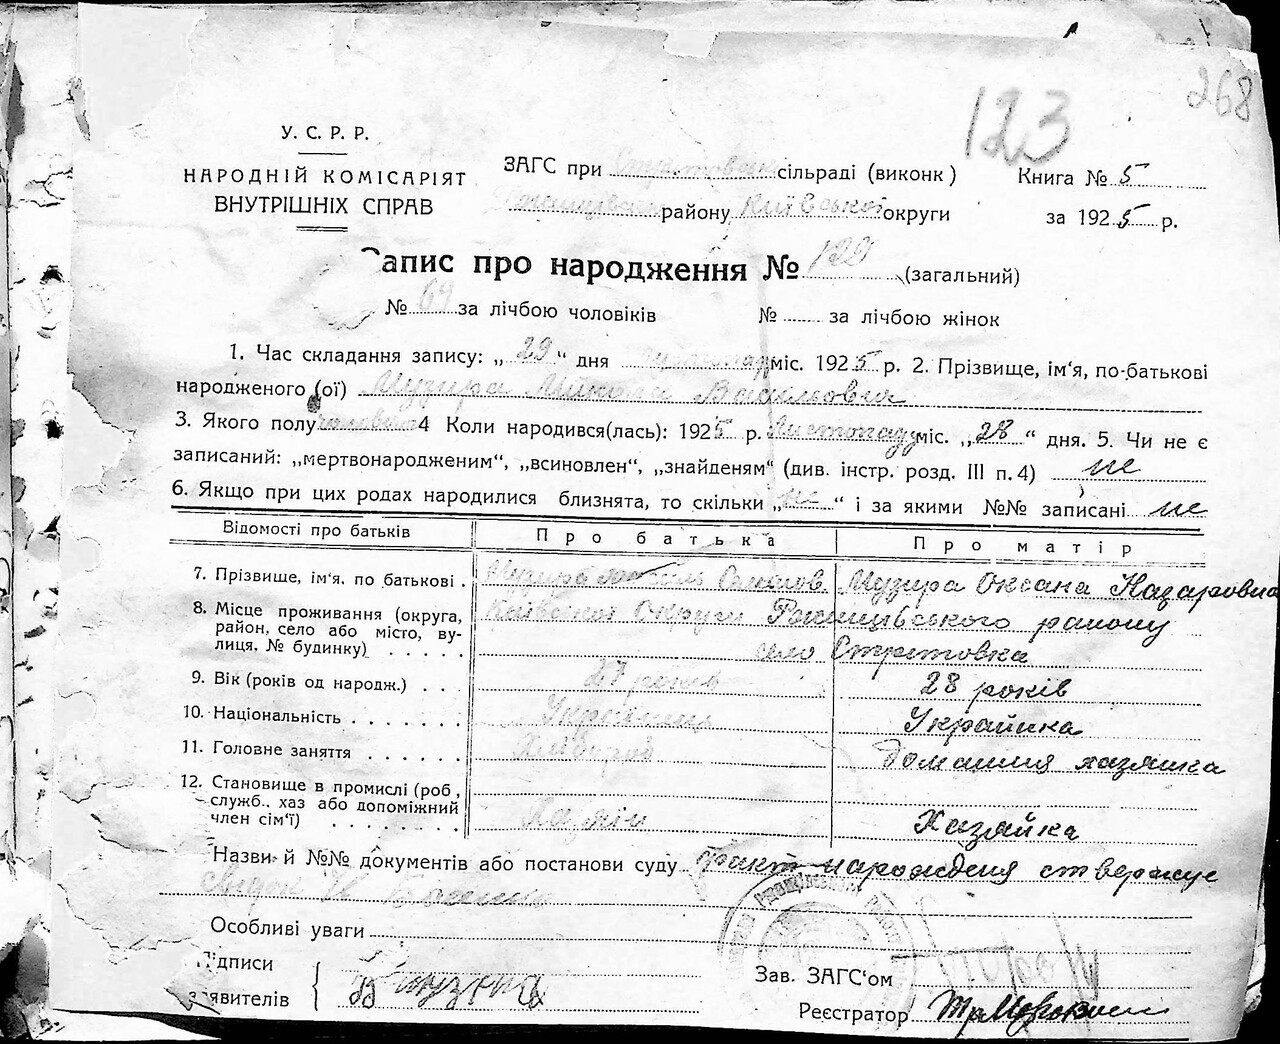 268
123
У. С. Р. Р.
НАРОДНІЙ КОМІСАРІЯТ
ВНУТРІШНІХ СПРАВ
ЗАГС при сільраді (виконк) Книга № 5
району Київської округи за 1925 р.
апис про народження № (загальний)
№ 69 за лічбою чоловіків № за лічбою жінок
1. Час складання запису: „29“ дня міс. 1925 р. 2. Прізвище, ім'я, по-батькові
народженого (ої) Музира Микола Васильович
3. Якого полу 4 Коли народився(лась): 1925 р. Листопаду міс. „28“ дня. 5. Чи не є
записаний: „мертвонародженим“, „всиновлен“, „знайденям“ (див. інстр. розд. III п.4) не
6. Якщо при цих родах народилися близнята, то скільки „не“ і за якими №№ записані не
Відомості про батьків Про батька Про матір
7. Прізвище, ім'я. по батькові . Музира Музира Оксана Назаровна
8. Місце проживання (округа, Київської Округи Ржищівського району
район, село або місто, ву-
лиця. № будинку) село Стретовка
9. Вік (років од народж.) . . . 27 років 28 років
10. Національність Українець Украйинка
11. Головне заняття Хлібороб домашня хазяика
12. Становище в промислі (роб,
служб.. хаз або допоміжний
член сім'ї) Хазяін Хазяйка
Назви й №№ документів або постанови суду факт народженя ствержує
свідок
Особливі уваги
ідписи
явителів
Зав. ЗАГС'ом
Реєстратор